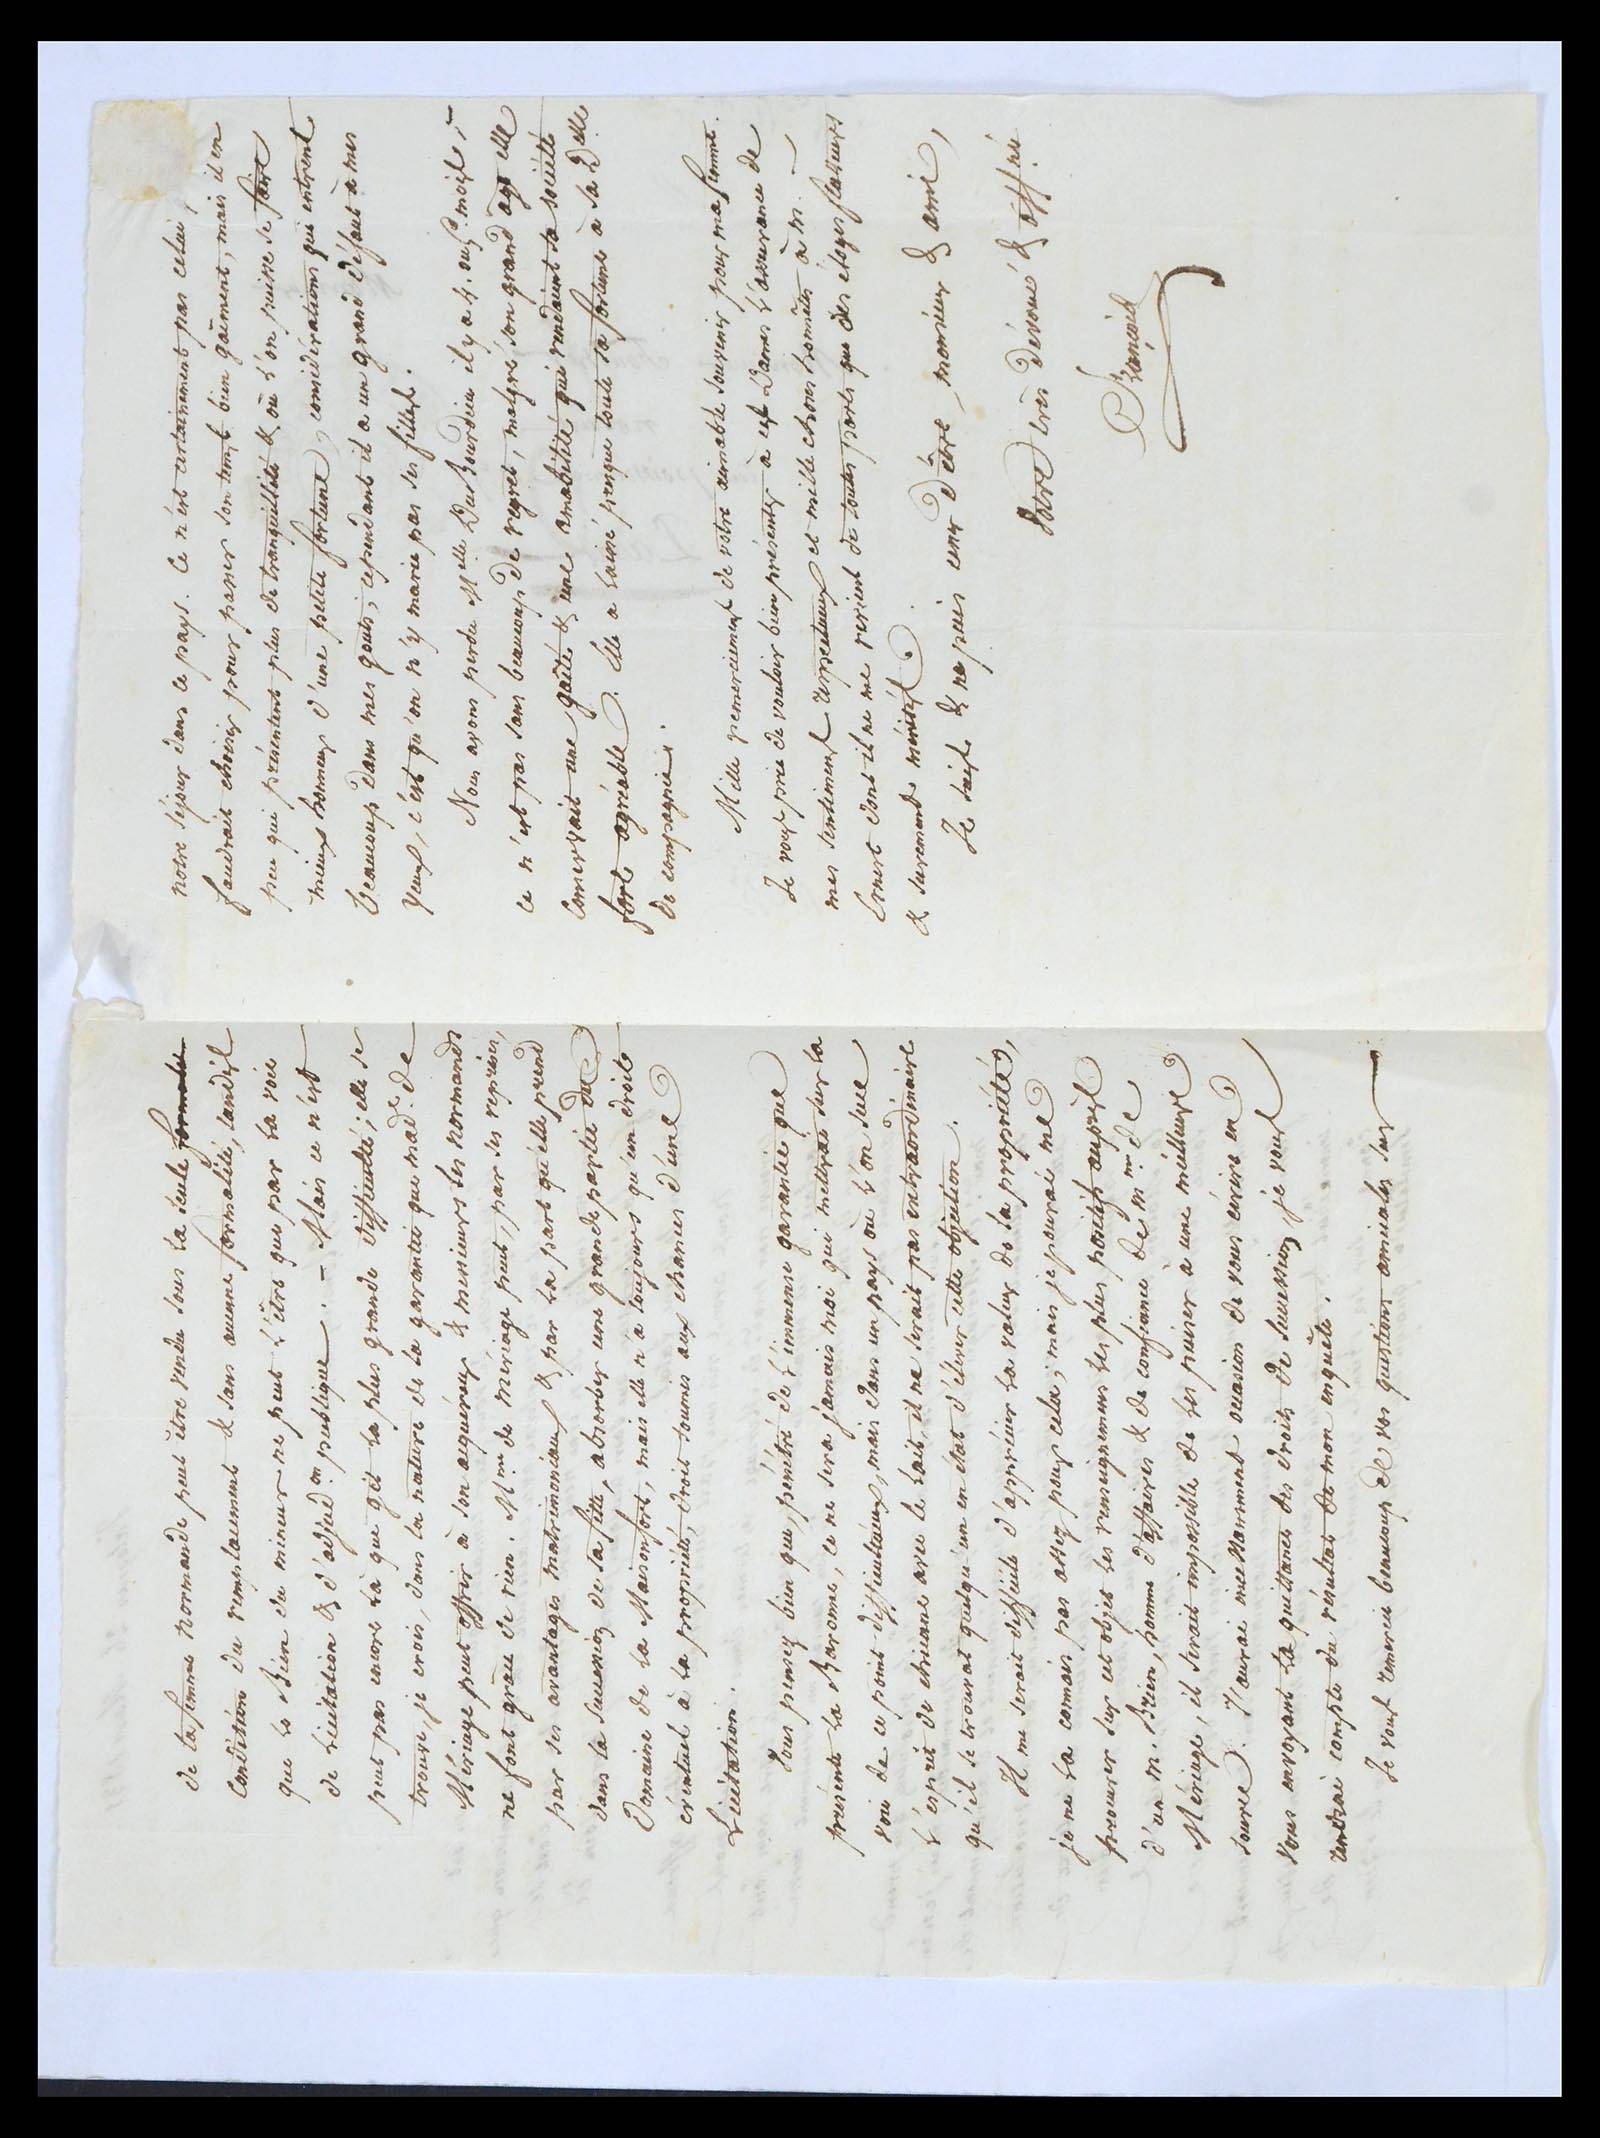 de la femme normande peut être vendu sous la seule formalité
Condition du remplacement & sans aucune formalité, tandis
que le Bien du mineur ne peut l'être que par la voie
de licitation & d'adjud.on publique. — Mais ce n'est
peut pas encore là que gît la plus grande difficulté; elle se
trouve, je crois, dans la nature de la garantie que mad.e de
Mériage peut offrir à son acquéreur & messieurs les normands
ne font grâce de rien. M.me de Mériage peut, par ses reprises,
par ses avantages matrimoniaux & par la part qu'elle prend
dans la succession de sa fille, absorber une grande partie du
Domaine de la Maisonfort, mais elle n'a toujours qu'un droit
éventuel à la propriété, droit soumis aux chances d'une
Licitation.
Vous pensez bien que, pénétré de l'immense garantie que
présente la Baronne, ce ne sera jamais moi qui mettrai sur la
voie de ce point difficultueux, mais dans un pays où l'on suce
l'esprit de chicane avec le lait, il ne serait pas extraordinaire
qu'il se trouvat quelqu'un en état d'élever cette objection.
Il me serait difficile d'apprécier la valeur de la propriété,
je ne la connais pas assez pour cela; mais je pourai me
procurer sur cet objet les renseignemens les plus positifs auprès
d'un M. Brien, homme d'affaires & de confiance de M.me de
Mériage, il serait impossible de les puiser à une meilleure
source. J'aurai incessamment occasion de vous écrire en
vous envoyant la quittance des droits de succession, je vous
rendrai compte du résultat de mon enquête.
Je vous remercie beaucoup de vos questions amicales sur
notre séjour dans ce pays. Ce n'est certainement pas celui,
faudrait choisir pour passer son tems bien gaîment, mais il en
peu qui présentent plus de tranquillité & où l'on puisse se faire
mieux honneur d'une petite fortune, considérations qui entrent
beaucoup dans mes gouts; cependant il a un grand défaut à mes
yeux, c'est qu'on n'y marie pas ses filles.
Nous avons perdu M.elle DuBourdieu il y a 4. ou 5. mois,
ce n'est pas sans beaucoup de regret, malgré son grand âge elle
conservait une gaîté & une amabilité qui rendaient sa société
fort agréable. Elle a laissé presque toute sa fortune à sa D.elle
de compagnie.
Mille remerciemens de votre aimable souvenir pour ma femme.
Je vous prie de vouloir bien présenter à ces Dames l'assurance de
mes sentimens respectueux et mille choses honnêtes à M.
Ernest dont il ne me revient de toutes parts que des éloges flatteurs
& surement mérités.
Je sais & ne puis cesser d'être, monsieur & ami,
Votre très dévoué & aff.né